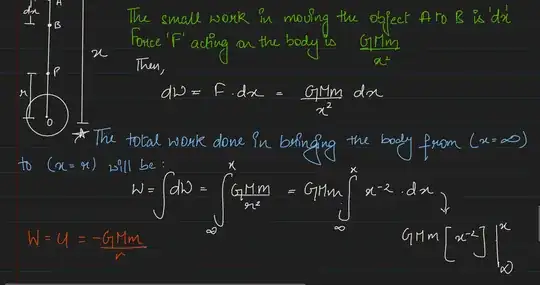 A
dx
B
x
P
r
O
The small work in moving the object A to B is 'dx'
Force 'F' acting on the body is GMm/x²
Then,
dW = F . dx = GMm/x² dx
The total work done in bringing the body from (x = ∞)
to (x = r) will be :
W = ∫dW = ∫_∞^x GMm/x² = GMm ∫_∞^x x⁻² . dx
W = U = -GMm/r
GMm [x⁻²] |_∞^x